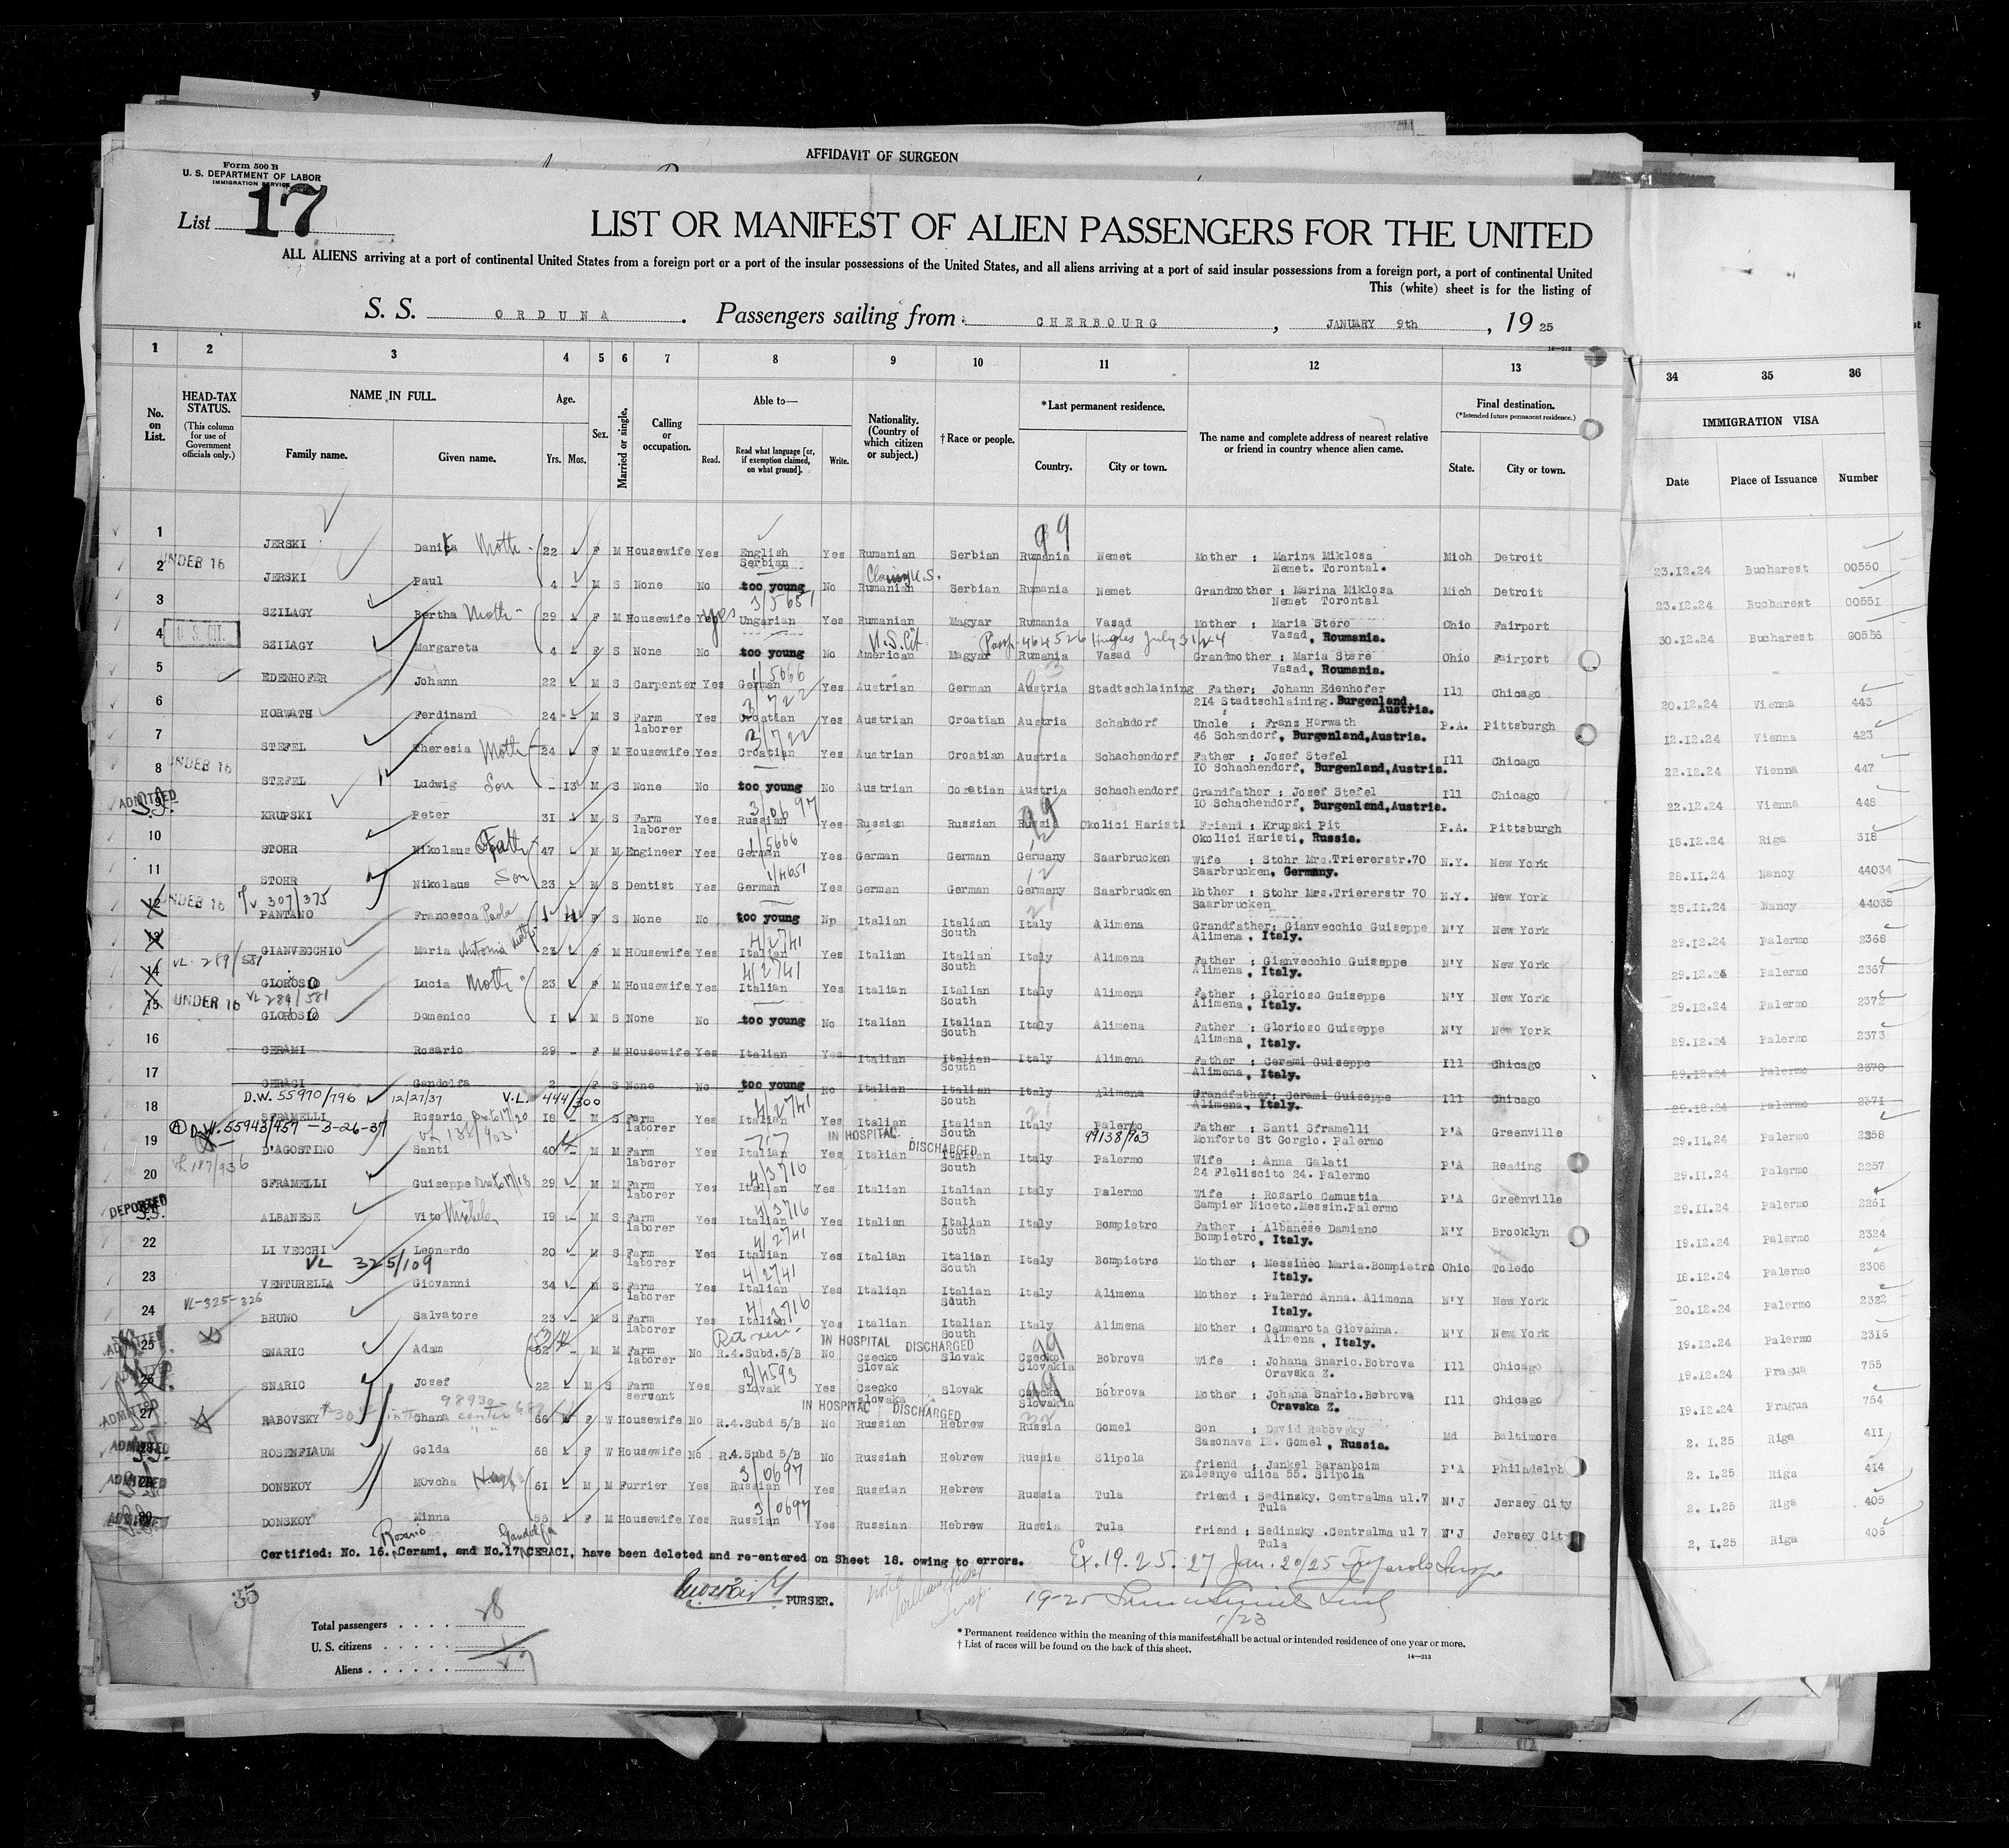 AFFIDAVIT OF SURGEON
Form 500 B
U. S. DEPARTMENT OF LABOR
IMMIGRATION SERVICE
List 17
LIST OR MANIFEST OF ALIEN PASSENGERS FOR THE UNITED
ALL ALIENS arriving at a port of continental United States from a foreign port or a port of the insular possessions of the United States, and all aliens arriving at a port of said insular possessions from a foreign port, a port of continental United
This (white) sheet is for the listing of
S. S. ORDUNA. Passengers sailing from: CHERBOURG, JANUARY 9th, 19 25
14—213
1 2 3 4 5 6 7 8 9 10 11 12 13 34 35 36
No. on List.
HEAD-TAX STATUS.
(This column for use of Government officials only.)
NAME IN FULL.
Family name. Given name.
Age.
Yrs. Mos.
Sex.
Married or single.
Calling or occupation.
Able to—
Read. Read what language [or, if exemption claimed, on what ground]. Write.
Nationality. (Country of which citizen or subject.)
† Race or people.
*Last permanent residence.
Country. City or town.
The name and complete address of nearest relative or friend in country whence alien came.
Final destination.
(*Intended future permanent residence.)
State. City or town.
IMMIGRATION VISA
Date Place of Issuance Number
99
1 JERSKI Danica Moth 22 F M Housewife Yes English Serbian Yes Rumanian Serbian Rumania Nemet Mother : Marina Miklosa Nemet. Torontal. Mich Detroit 23.12.24 Bucharest 00550
UNDER 16
2 JERSKI Paul 4 - M S None No too young No Rumanian Serbian Rumania Nemet Grandmother : Marina Miklosa Nemet Torontal Mich Detroit 23.12.24 Bucharest 00551
3 SZILAGY Bertha Moth 29 F M Housewife Yes Ungarian Yes Rumanian Magyar Rumania Vasad Mother : Maria Stere Vasad, Roumania. Ohio Fairport 30.12.24 Bucharest 00556
U. S. CIT. U.S. Cit. 464526 Hughes July 31/24
4 SZILAGY Margareta 4 - F S None No too young No American Magyar Rumania Vasad Grandmother : Maria Stere Vasad, Roumania. Ohio Fairport
5 EDENHOFER Johann 22 M S Carpenter Yes German Yes Austrian German Austria Stadtschlaining Father: Johann Edenhofer 214 Stadtschlaining. Burgenland Austria. Ill Chicago 20.12.24 Vienna 443
6 HORWATH Ferdinand 24 - M S Farm laborer Yes Croatian Yes Austrian Croatian Austria Schahdorf Uncle : Franz Horwath 46 Schendorf, Burgenland,Austria. P.A. Pittsburgh 12.12.24 Vienna 423
7 STEFEL Theresia Moth 24 F M Housewife Yes Croatian Yes Austrian Croatian Austria Schachendorf Father : Josef Stefel IO Schachendorf, Burgenland,Austria. Ill Chicago 22.12.24 Vienna 447
UNDER 16
8 STEFEL Ludwig Son - 13 M S None No too young No Austrian Coretian Austria Schachendorf Grandfather : Josef Stefel IO Schachendorf, Burgenland,Austria. Ill Chicago 22.12.24 Vienna 448
ADMITTED
9 KRUPSKI Peter 3I M S Farm laborer Yes Russian Yes Russian Russian Russia Okolici Haristi Friend : Krupski Pit Okolici Haristi, Russia. P.A. Pittsburgh 18.12.24 Riga 318
10 STOHR Nikolaus Fath 47 - M M Engineer Yes German Yes German German Germany Saarbrucken Wife : Stohr Mrs.Triererstr.70 Saarbrucken, Germany. N.Y. New York 28.11.24 Nancy 44034
11 STOHR Nikolaus Son 23 - M S Dentist Yes German Yes German German Germany Saarbrucken Mother : Stohr Mrs.Triererstr 70 Saarbrucken N.Y. New York 28.11.24 Nancy 44035
UNDER 16 307/375
12 PANTANO Francesca Paola F S None No too young Np Italian Italian South Italy Alimena Grandfather: Gianvecchio Guiseppe Alimena, Italy. N'Y New York 29.12.24 Palermo 2368
13 GIANVECCHIO Maria Antonia Moth 23 F M HOusewife Yes Italian Yes Italian Italian South Italy Alimena Father : Gianvecchio Guiseppe Alimena, Italy. N'Y New York 29.12.24 Palermo 2367
VL-289/581
14 GLOROSIO Lucia Moth 23 F M Housewife Yes Italian Yes Italian Italian South Italy Alimena Father : Glorioso Guiseppe Alimena, Italy. N'Y New York 29.12.24 Palermo 2372
UNDER 16 VL 289/581
15 GLOROSIO Domenico I M S None No too young No Italian Italian South Italy Alimena Father : Glorioso Guiseppe Alimena, Italy. N'Y New York 29.12.24 Palermo 2373
16 CERAMI Rosario 29 - F M Housewife Yes Italian Yes Italian Italian South Italy Alimena Father : Cerami Guiseppe Alimena, Italy. Ill Chicago 29.12.24 Palermo 2370
17 CERACI Gandolfa 2 F S None No too young No Italian Italian South Italy Alimena Grandfather: Cerami Guiseppe Alimena, Italy. Ill Chicago 29.12.24 Palermo 2371
D.W. 55970/796 12/27/37 V.L. 444/300
18 SFRAMELLI Rosario 18 - M S Farm laborer Yes Italian Yes Italian Italian South Italy Palermo Father : Santi Sframelli Monforte St Gorgio. Palermo P'A Greenville 29.11.24 Palermo 2258
D.W. 55943/457 - 3-26-37 IN HOSPITAL. DISCHARGED 99138/903
19 D'AGOSTINO Santi 40 M M Farm laborer Yes Italian Yes Italian Italian South Italy Palermo Wife : Anna Galati 24 Fleliscito 24. Palermo P'A Reading 29.11.24 Palermo 2257
187/936
20 SFRAMELLI Guiseppe 29 - M M Farm laborer Yes Italian Yes Italian Italian South Italy Palermo Wife : Rosario Camustia Sampier Niceto.Messin.Palermo P'A Greenville 29.11.24 Palermo 2261
DEPORTED
ALBANESE Vito Michele 19 - M S Farm laborer Yes Italian Yes Italian Italian South Italy Bompietro Father : Albanese Damiano Bompietro, Italy. N'Y Brooklyn 19.12.24 Palermo 2324
22 LI VECCHI Leonardo 20 - M S Farm laborer Yes Italian Yes Italian Italian South Italy Bompietro Mother : Messineo Maria.Bompietro Italy. Ohio Toledo 18.12.24 Palermo 2308
VL 325/109
23 VENTURELLA Giovanni 34 M S Farm laborer Yes Italian Yes Italian Italian South Italy Alimena Mother : Palermo Anna. Alimena Italy. N'Y New York 20.12.24 Palermo 2322
VL-325-326
24 BRUNO Salvatore 23 - M S Farm laborer Yes Italian Yes Italian Italian South Italy Alimena Mother : Cammarota Giovanna. Alimena, Italy. N'Y New York 19.12.24 Palermo 2316
ADMITTED IN HOSPITAL DISCHARGED
25 SNARIC Adam 52 - M M Farm laborer No R.4.Subd.5/B No Czecko Slovak Slovak Czecko Slovakia Bobrova Wife : Johana Snaric.Bobrova Oravska Z. Ill Chicago 19.12.24 Pragua 755
26 SNARIC Josef 22 M S Farm servant Yes Slovak Yes Czecko slovaka Slovak Czecko Slovakia Bobrova Mother : Johana Snaric.Bobrova Oravska Z. Ill Chicago 19.12.24 Pragua 754
ADMITTED IN HOSPITAL DISCHARGED
27 RABOVSKY Chana 66 F W Housewife No R.4.Subd 5/B No Russian Hebrew Russia Gomel Son : David Rabovsky Sazonava I2. Gomel, Russia. Md Baltimore 2. 1.25 Riga 411
ADMITTED
28 ROSENFLAUM Golda 68 F W Housewife No R.4.Subd 5/B No Russian Hebrew Russia Slipola friend : Jankel Baranboim Kalesnye ulica 55. Slipola P'A Philadelph 2. 1.25 Riga 414
ADMITTED
29 DONSKOY MOvcha 61 M M Furrier Yes Russian Yes Russian Hebrew Russia Tula friend : Sedinzky. Centralma ul.7 Tula N'J Jersey City 2. 1.25 Riga 405
ADMITTED
30 DONSKOY Minna 55 F M Housewife Yes Russian Yes Russian Hebrew Russia Tula friend : Sedinzky .Centralma ul 7 Tula N'J Jersey City 2, 1.25 Riga 406
Rosario Gandolfa
Certified: No. 16. Cerami, and No.17 CERACI, have been deleted and re-entered on Sheet 18. owing to errors.
Ex. 19. 25. 27 Jan. 20/25
PURSER.
35
19-25
1/23
Total passengers . . . . . 28
U. S. citizens . . . . . 1
Aliens . . . . . . 27
* Permanent residence within the meaning of this manifest shall be actual or intended residence of one year or more.
† List of races will be found on the back of this sheet.
14—213